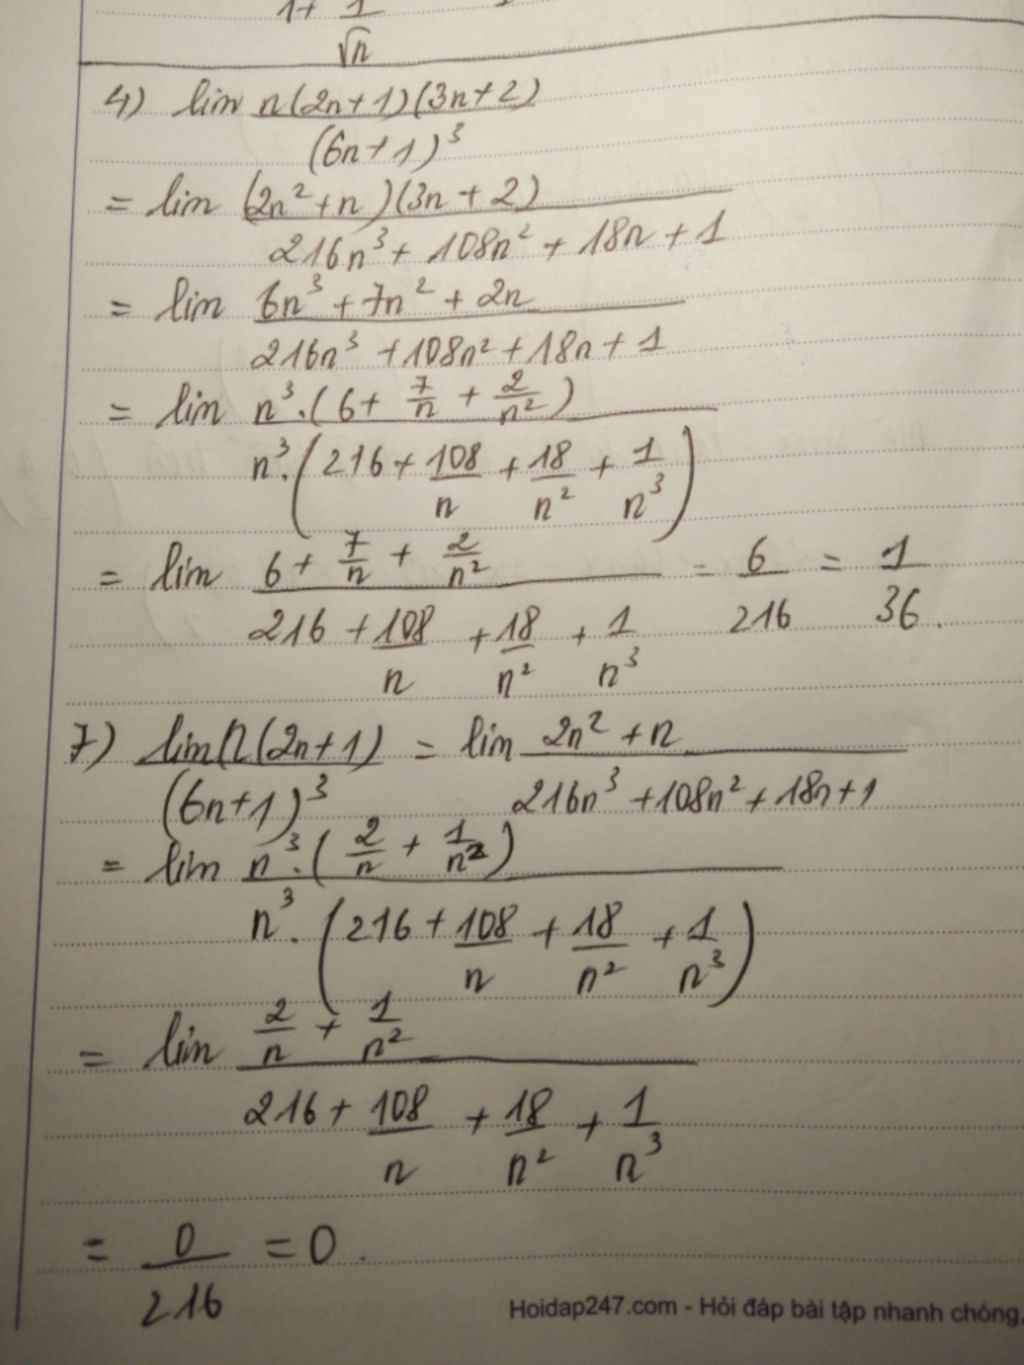 1 + 1/√n
4) lim n(2n+1)(3n+2)/(6n+1)³
= lim (2n²+n)(3n+2)/(216n³ + 108n² + 18n + 1)
= lim (6n³ + 7n² + 2n)/(216n³ + 108n² + 18n + 1)
= lim n³.(6 + 7/n + 2/n²)/n³.(216 + 108/n + 18/n² + 1/n³)
= lim (6 + 7/n + 2/n²)/(216 + 108/n + 18/n² + 1/n³) = 6/216 = 1/36.
7) lim n(2n+1)/(6n+1)³ = lim (2n² + n)/(216n³ + 108n² + 18n + 1)
= lim n³.(2/n + 1/n²)/n³.(216 + 108/n + 18/n² + 1/n³)
= lim (2/n + 1/n²)/(216 + 108/n + 18/n² + 1/n³)
= 0/216 = 0.
Hoidap247.com - Hỏi đáp bài tập nhanh chóng,